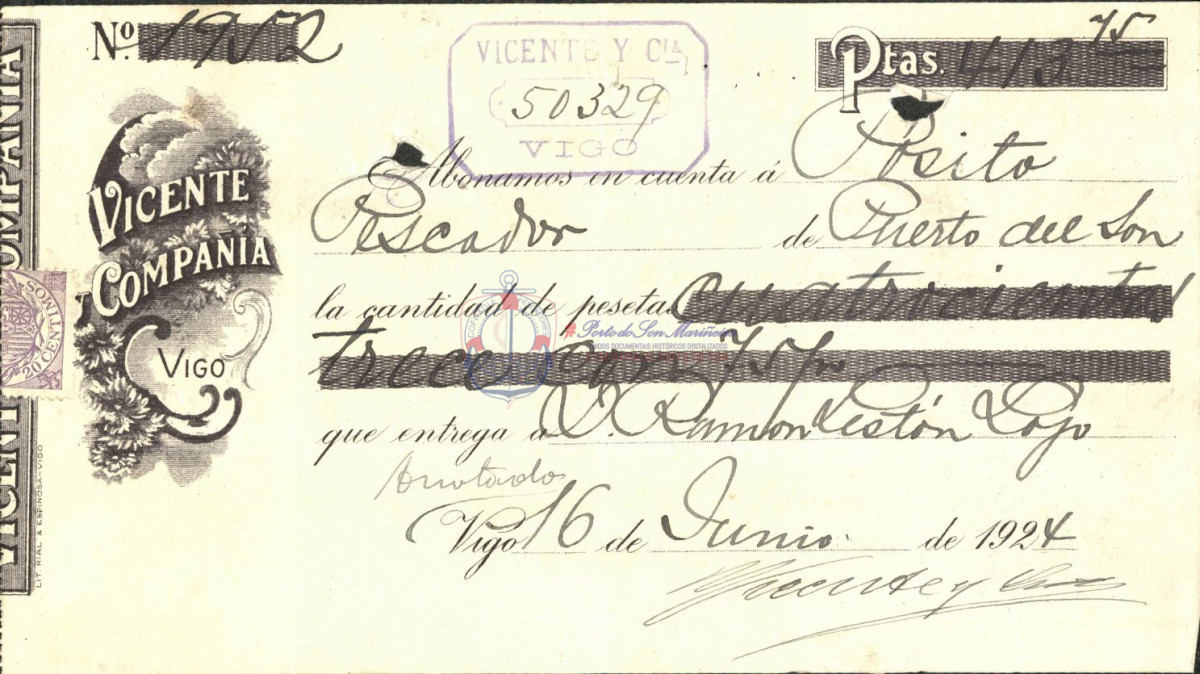 Nº 1952
VICENTE Y CIA
50329
VIGO
Ptas. 413 75
Abonamos en cuenta á Pósito
Pescador de Puerto del Son
la cantidad de pesetas cuatrocientas
trece con 75/00
que entrega a D. Ramon Lestón Lojo
Anotado
Vigo 16 de Junio de 1924
Vicente y Cia
VICENTE
COMPAÑIA
VIGO
20 CENTIMOS
LIT. RIAL & ESPINOSA-VIGO
Porto do Son Mariñeiro
FONDOS DOCUMENTAIS HISTÓRICOS DIXITALIZADOS